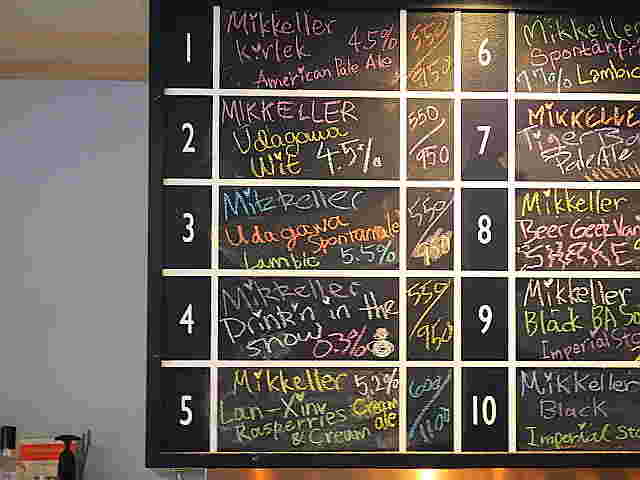 1
Mikkeller
Kirlek 4.5%
American Pale Ale
550/950
2
MIKKELLER
Udagawa
WiE 4.5%
550/950
3
Mikkeller
Udagawa
Spontanale
Lambic 5.5%
550/950
4
Mikkeller
Drink'n in the
snow 0.3%
550/950
5
Mikkeller 5.2%
Lan-Xinv Cream
Rasperries ale
& Cream
600/1100
6
Mikkeller
7.7% Lambic
7
MIKKELLE
Tiger
Pale Ale
8
Mikkeller
Beer Geek Van
SHAKE
9
Mikkeller
Black BA So
Imperial Sto
10
Mikkeller
Black
Imperial Sto